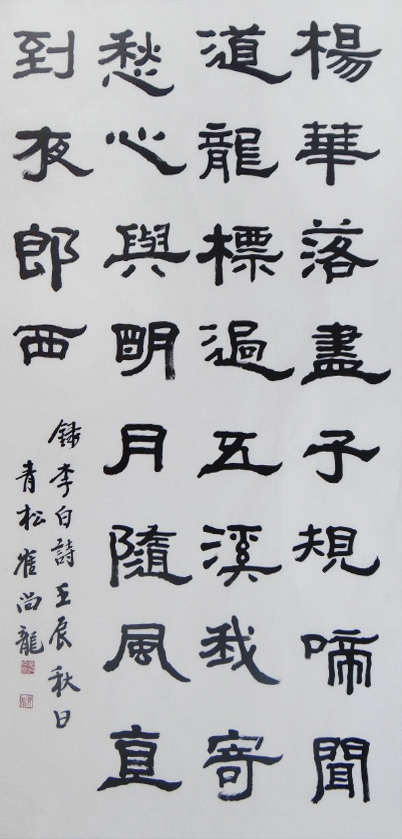 楊華落盡子規啼聞
道龍標過五溪我寄
愁心與明月隨風直
到夜郎西
錄李白詩壬辰秋日
青松崔尚龍